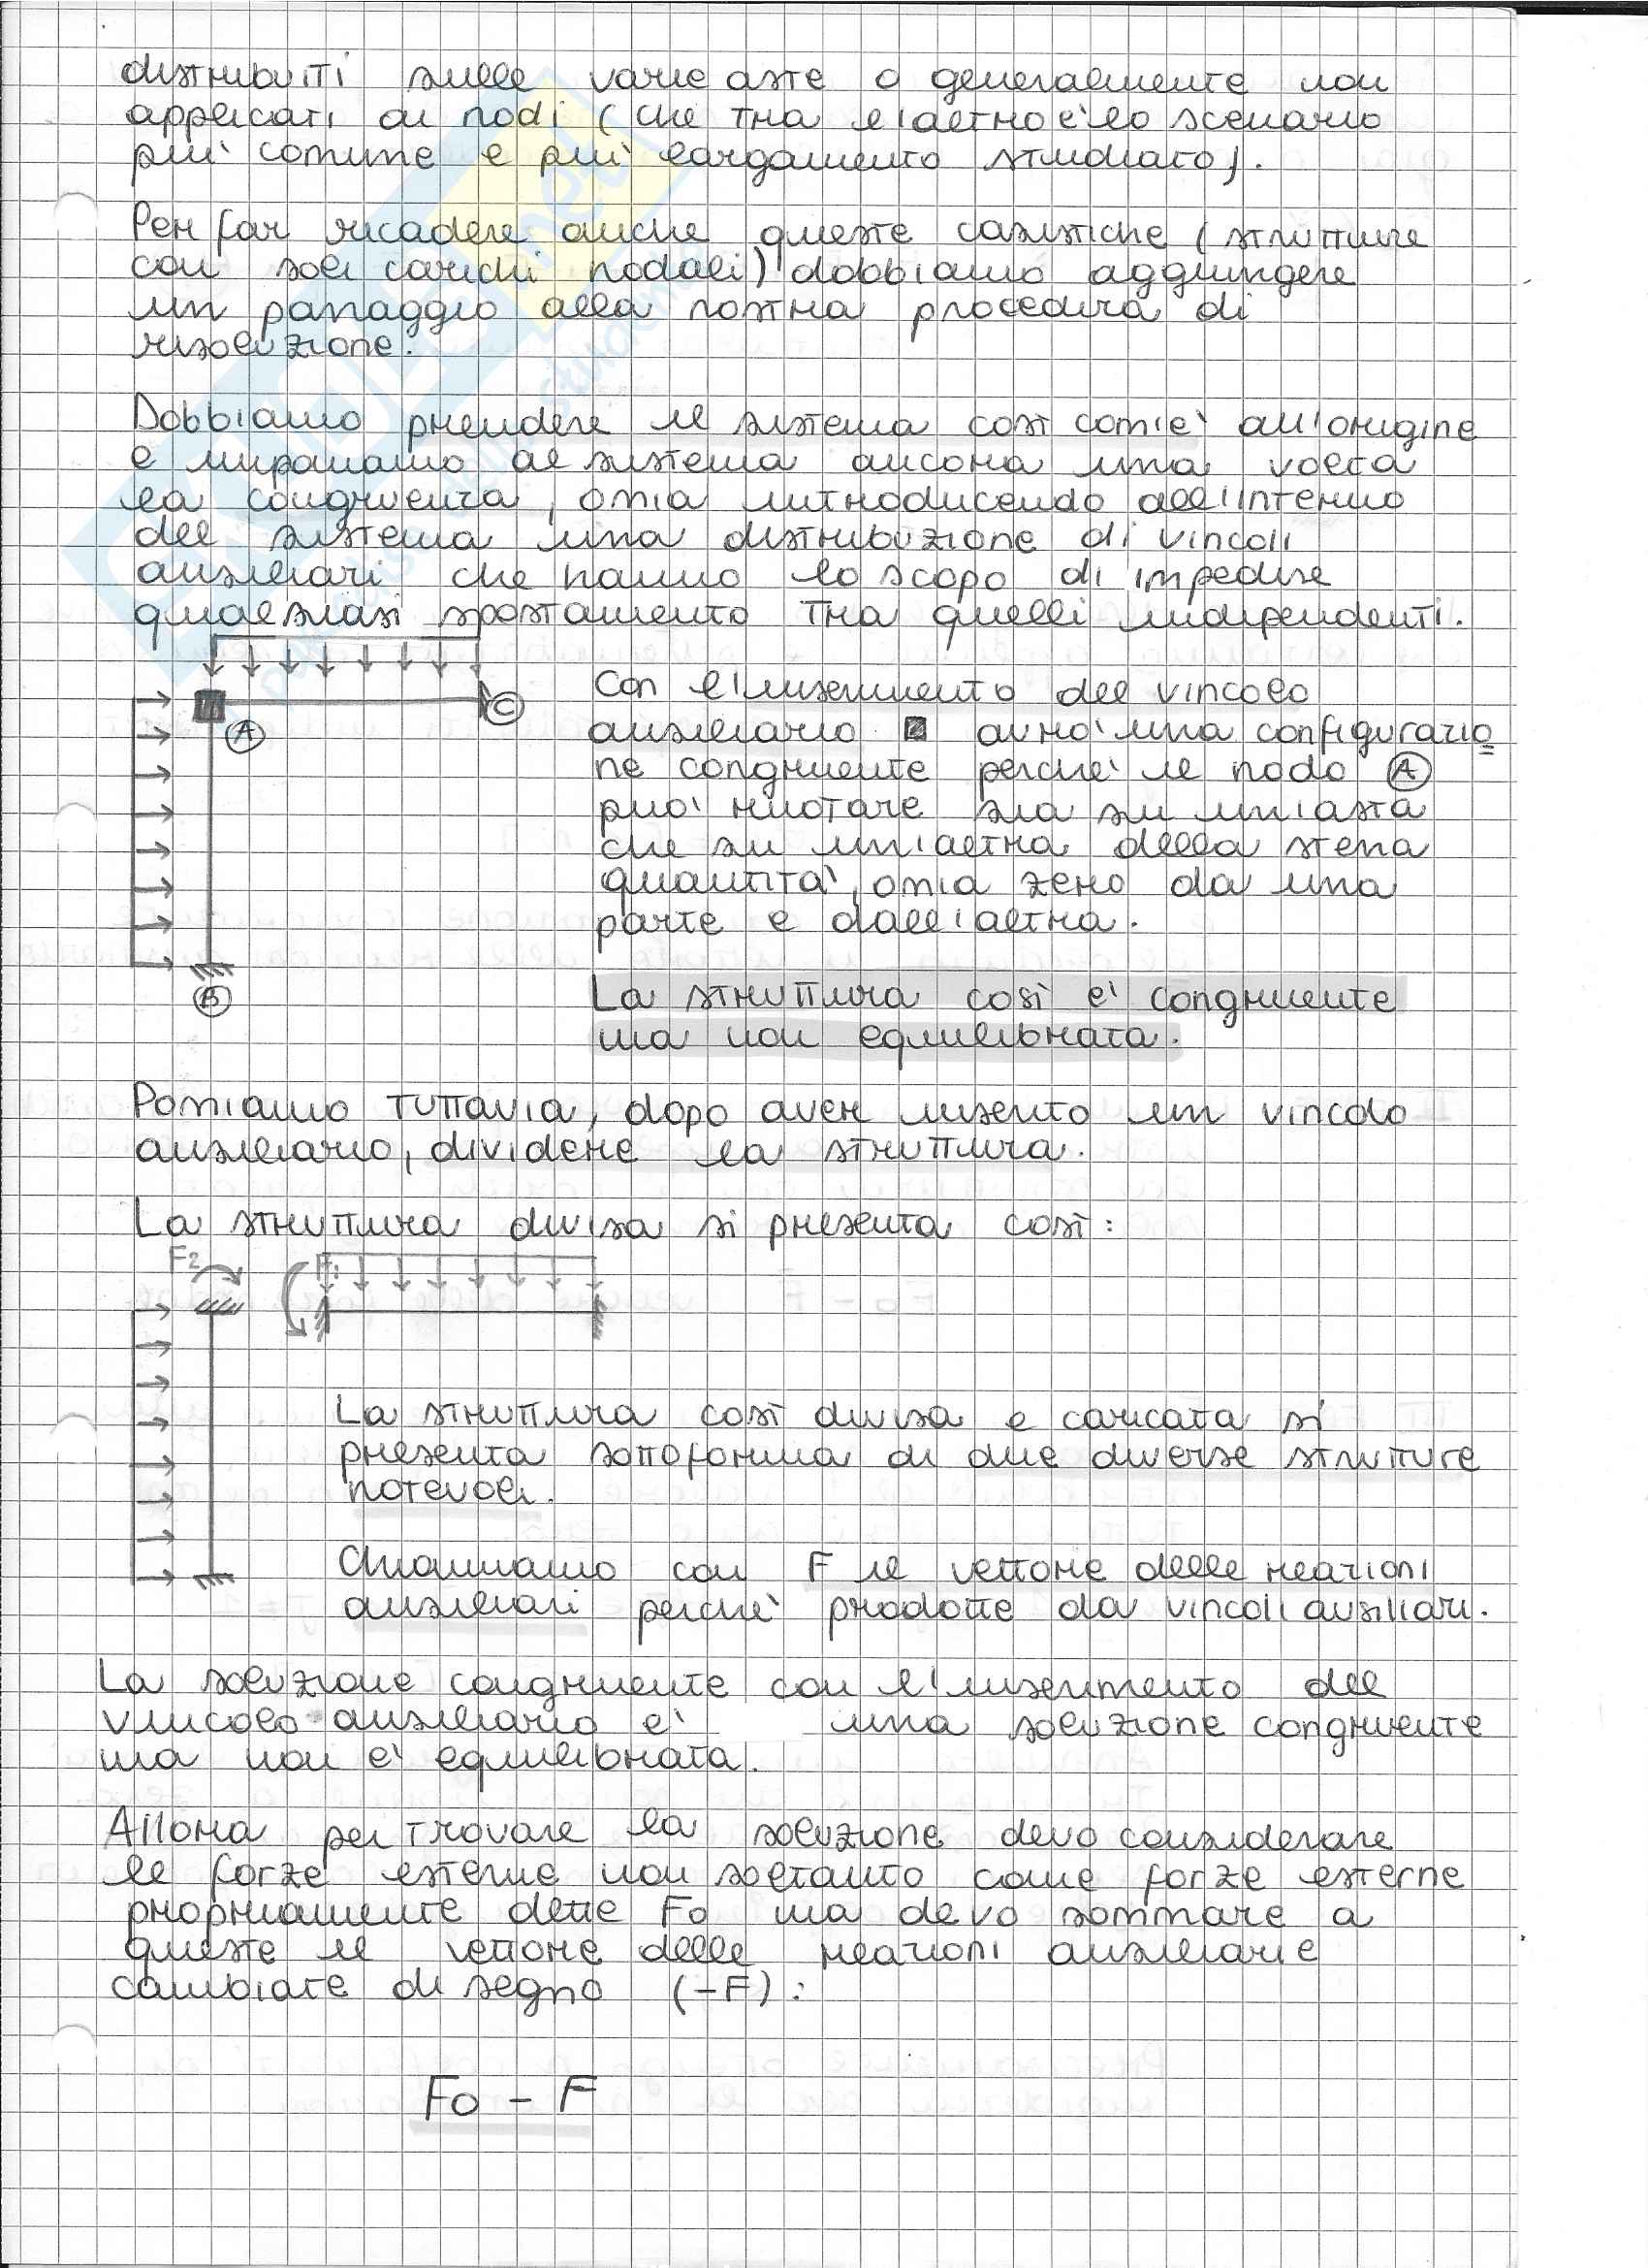 distribuiti sulle varie aste o generalmente non
applicati ai nodi (che tra l'altro è lo scenario
più comune e più largamento studiato).
Per far ricadere anche queste casistiche (strutture
con soli carichi nodali) dobbiamo aggiungere
un passaggio alla nostra procedura di
risoluzione.
Dobbiamo prendere il sistema così com'è all'origine
e imponiamo al sistema ancora una volta
la congruenza, ossia introducendo all'interno
del sistema una distribuzione di vincoli
ausiliari che hanno lo scopo di impedire
qualsiasi spostamento tra quelli indipendenti.
Con l'inserimento del vincolo
ausiliario avrò una configurazio
ne congruente perché il nodo A
può ruotare sia su un'asta
che su un'altra della stessa
quantità, ossia zero da una
parte e dall'altra.
A
C
B
La struttura così è congruente
ma non equilibrata.
Possiamo tuttavia, dopo aver inserito un vincolo
ausiliario, dividere la struttura.
La struttura divisa si presenta così:
F2
F1
La struttura così divisa e caricata si
presenta sottoforma di due diverse strutture
notevoli.
Chiamiamo con F il vettore delle reazioni
ausiliari perché prodotte da vincoli ausiliari.
La soluzione congruente con l'inserimento del
vincolo ausiliario è una soluzione congruente
ma non è equilibrata.
Allora per trovare la soluzione devo considerare
le forze esterne non soltanto come forze esterne
propriamente dette Fo ma devo sommare a
queste il vettore delle reazioni ausiliarie
cambiate di segno (-F):
Fo - F